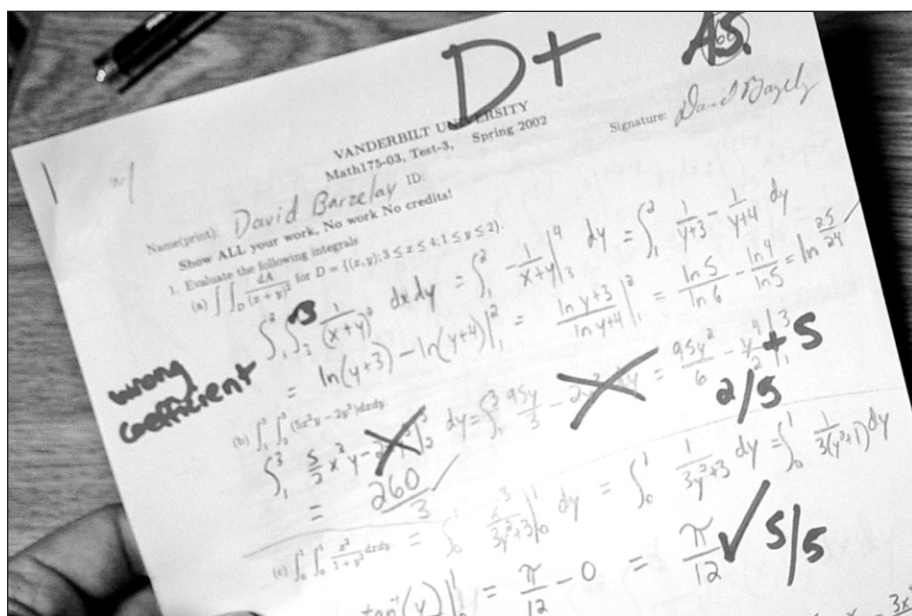 D+
A5.
VANDERBILT UNIVERSITY
Math175-03, Test-3, Spring 2002
Signature:
Name(print): David Barzelay ID:
Show ALL your work, No work No credits!
1. Evaluate the following integrals
(a) ∫∫_D dA/(x+y)² for D = {(x,y); 3 ≤ x ≤ 4; 1 ≤ y ≤ 2}.
∫₁² ∫₃ 1/(x+y)² dx dy = ∫₁² -1/(x+y)|₃⁴ dy = ∫₁² 1/(y+3) - 1/(y+4) dy
= ln(y+3) - ln(y+4)|₁² = ln y+3/ln y+4|₁² = ln 5/ln 6 - ln 4/ln 5 = ln 25/24 ✓
+5
wrong
coefficient
(b) ∫₁³ ∫₂³ (5x²y - 2y³)dxdy
∫₁³ 5/2 x²y - dy = ∫₁³ 95y/3 - = 95y²/6 -
= 260/3 ✓
2/5
(c) ∫₀¹ ∫₀¹ x²/(1+y²) dxdy = ∫₀¹ x³/(3y²+3)|₀¹ dy = ∫₀¹ 1/(3y²+3) dy = ∫₀¹ 1/3(y²+1) dy
tan⁻¹(y)|₀¹ = π/12 - 0 = π/12 ✓ 5/5